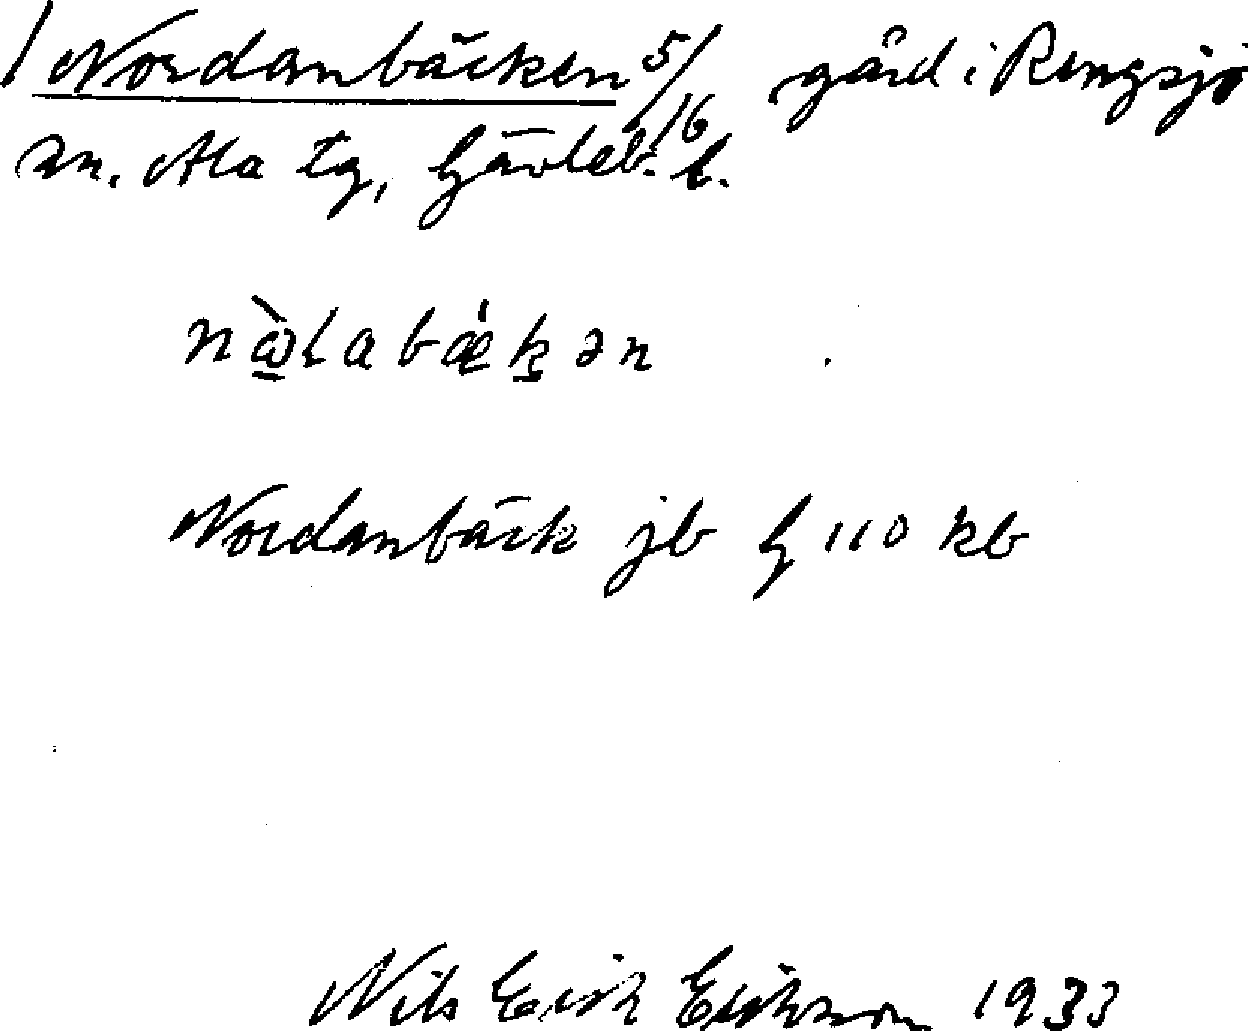 Nordanbäcken 5/16 gård i Rengsjö
sn. Ala tg, Gävleb. l.
Nordanbäck jb G 110 kb
Nils Erik Erikson 1933